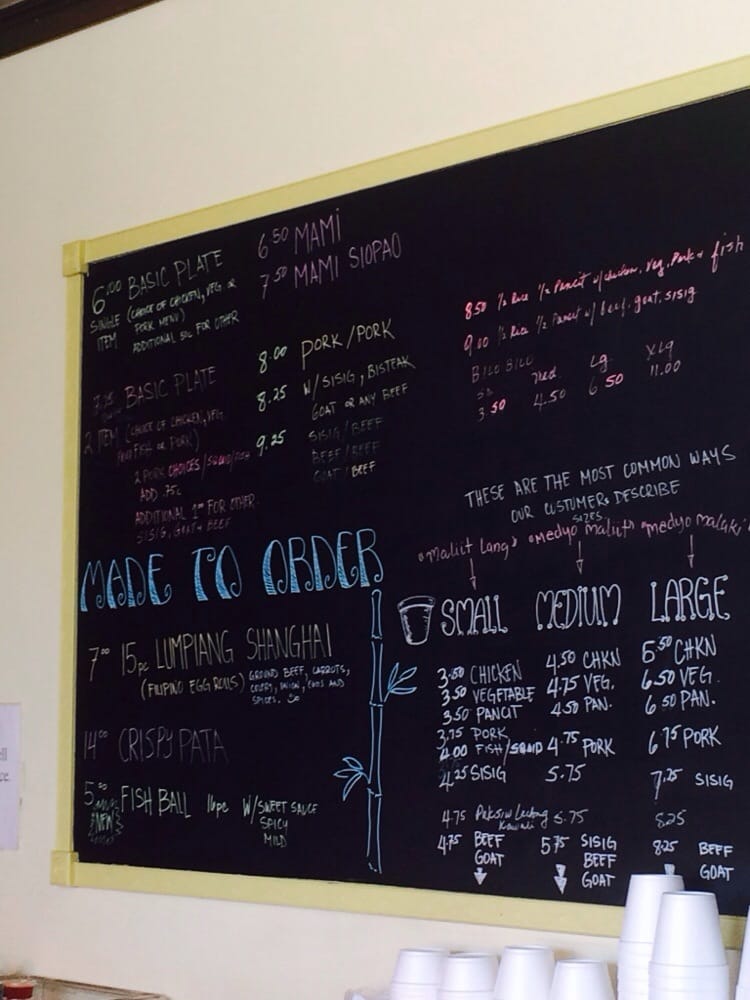 6.00 BASIC PLATE
SINGLE ITEM (CHOICE OF CHICKEN, VEG. OR
PORK MENU)
ADDITIONAL 50¢ FOR OTHER
6.50 MAMI
7.50 MAMI SIOPAO
BASIC PLATE
2 ITEM (CHOICE OF CHICKEN, VEG
FISH OR PORK)
2 PORK CHOICES/SQUID/FISH
ADD .75¢
ADDITIONAL FOR OTHER
SISIG, GOAT & BEEF
8.00 PORK/PORK
8.25 W/ SISIG, BISTEAK
GOAT OR ANY BEEF
9.25 SISIG/BEEF
BEEF/BEEF
GOAT/BEEF
8.50 1/2 Rice 1/2 Pancit w/ chicken, Veg, Pork & fish
9.00 1/2 Rice 1/2 Pancit w/ beef, goat, sisig
BILO BILO
Sm Med Lg XLg
3.50 4.50 6.50 11.00
MADE TO ORDER
7.00 15pc LUMPIANG SHANGHAI
(FILIPINO EGG ROLLS) GROUND BEEF, CARROTS,
CELERY, ONION, EGGS AND
SPICES.
14.00 CRISPY PATA
5.00 FISH BALL 16pc W/SWEET SAUCE
NEW SPICY
MILD
THESE ARE THE MOST COMMON WAYS
OUR CUSTOMERS DESCRIBE
SIZES
"maliit lang" "medyo maliit" "medyo malaki"
SMALL MEDIUM LARGE
3.50 CHICKEN 4.50 CHKN 5.50 CHKN
3.50 VEGETABLE 4.75 VEG. 6.50 VEG.
3.50 PANCIT 4.50 PAN. 6.50 PAN.
3.75 PORK 4.75 PORK 6.75 PORK
4.00 FISH/SQUID
4.25 SISIG 5.75 7.25 SISIG
4.75 Paksiw Lechong 5.75 8.25
Kawali
4.75 BEEF 5.75 SISIG 8.25 BEEF
GOAT BEEF GOAT
GOAT